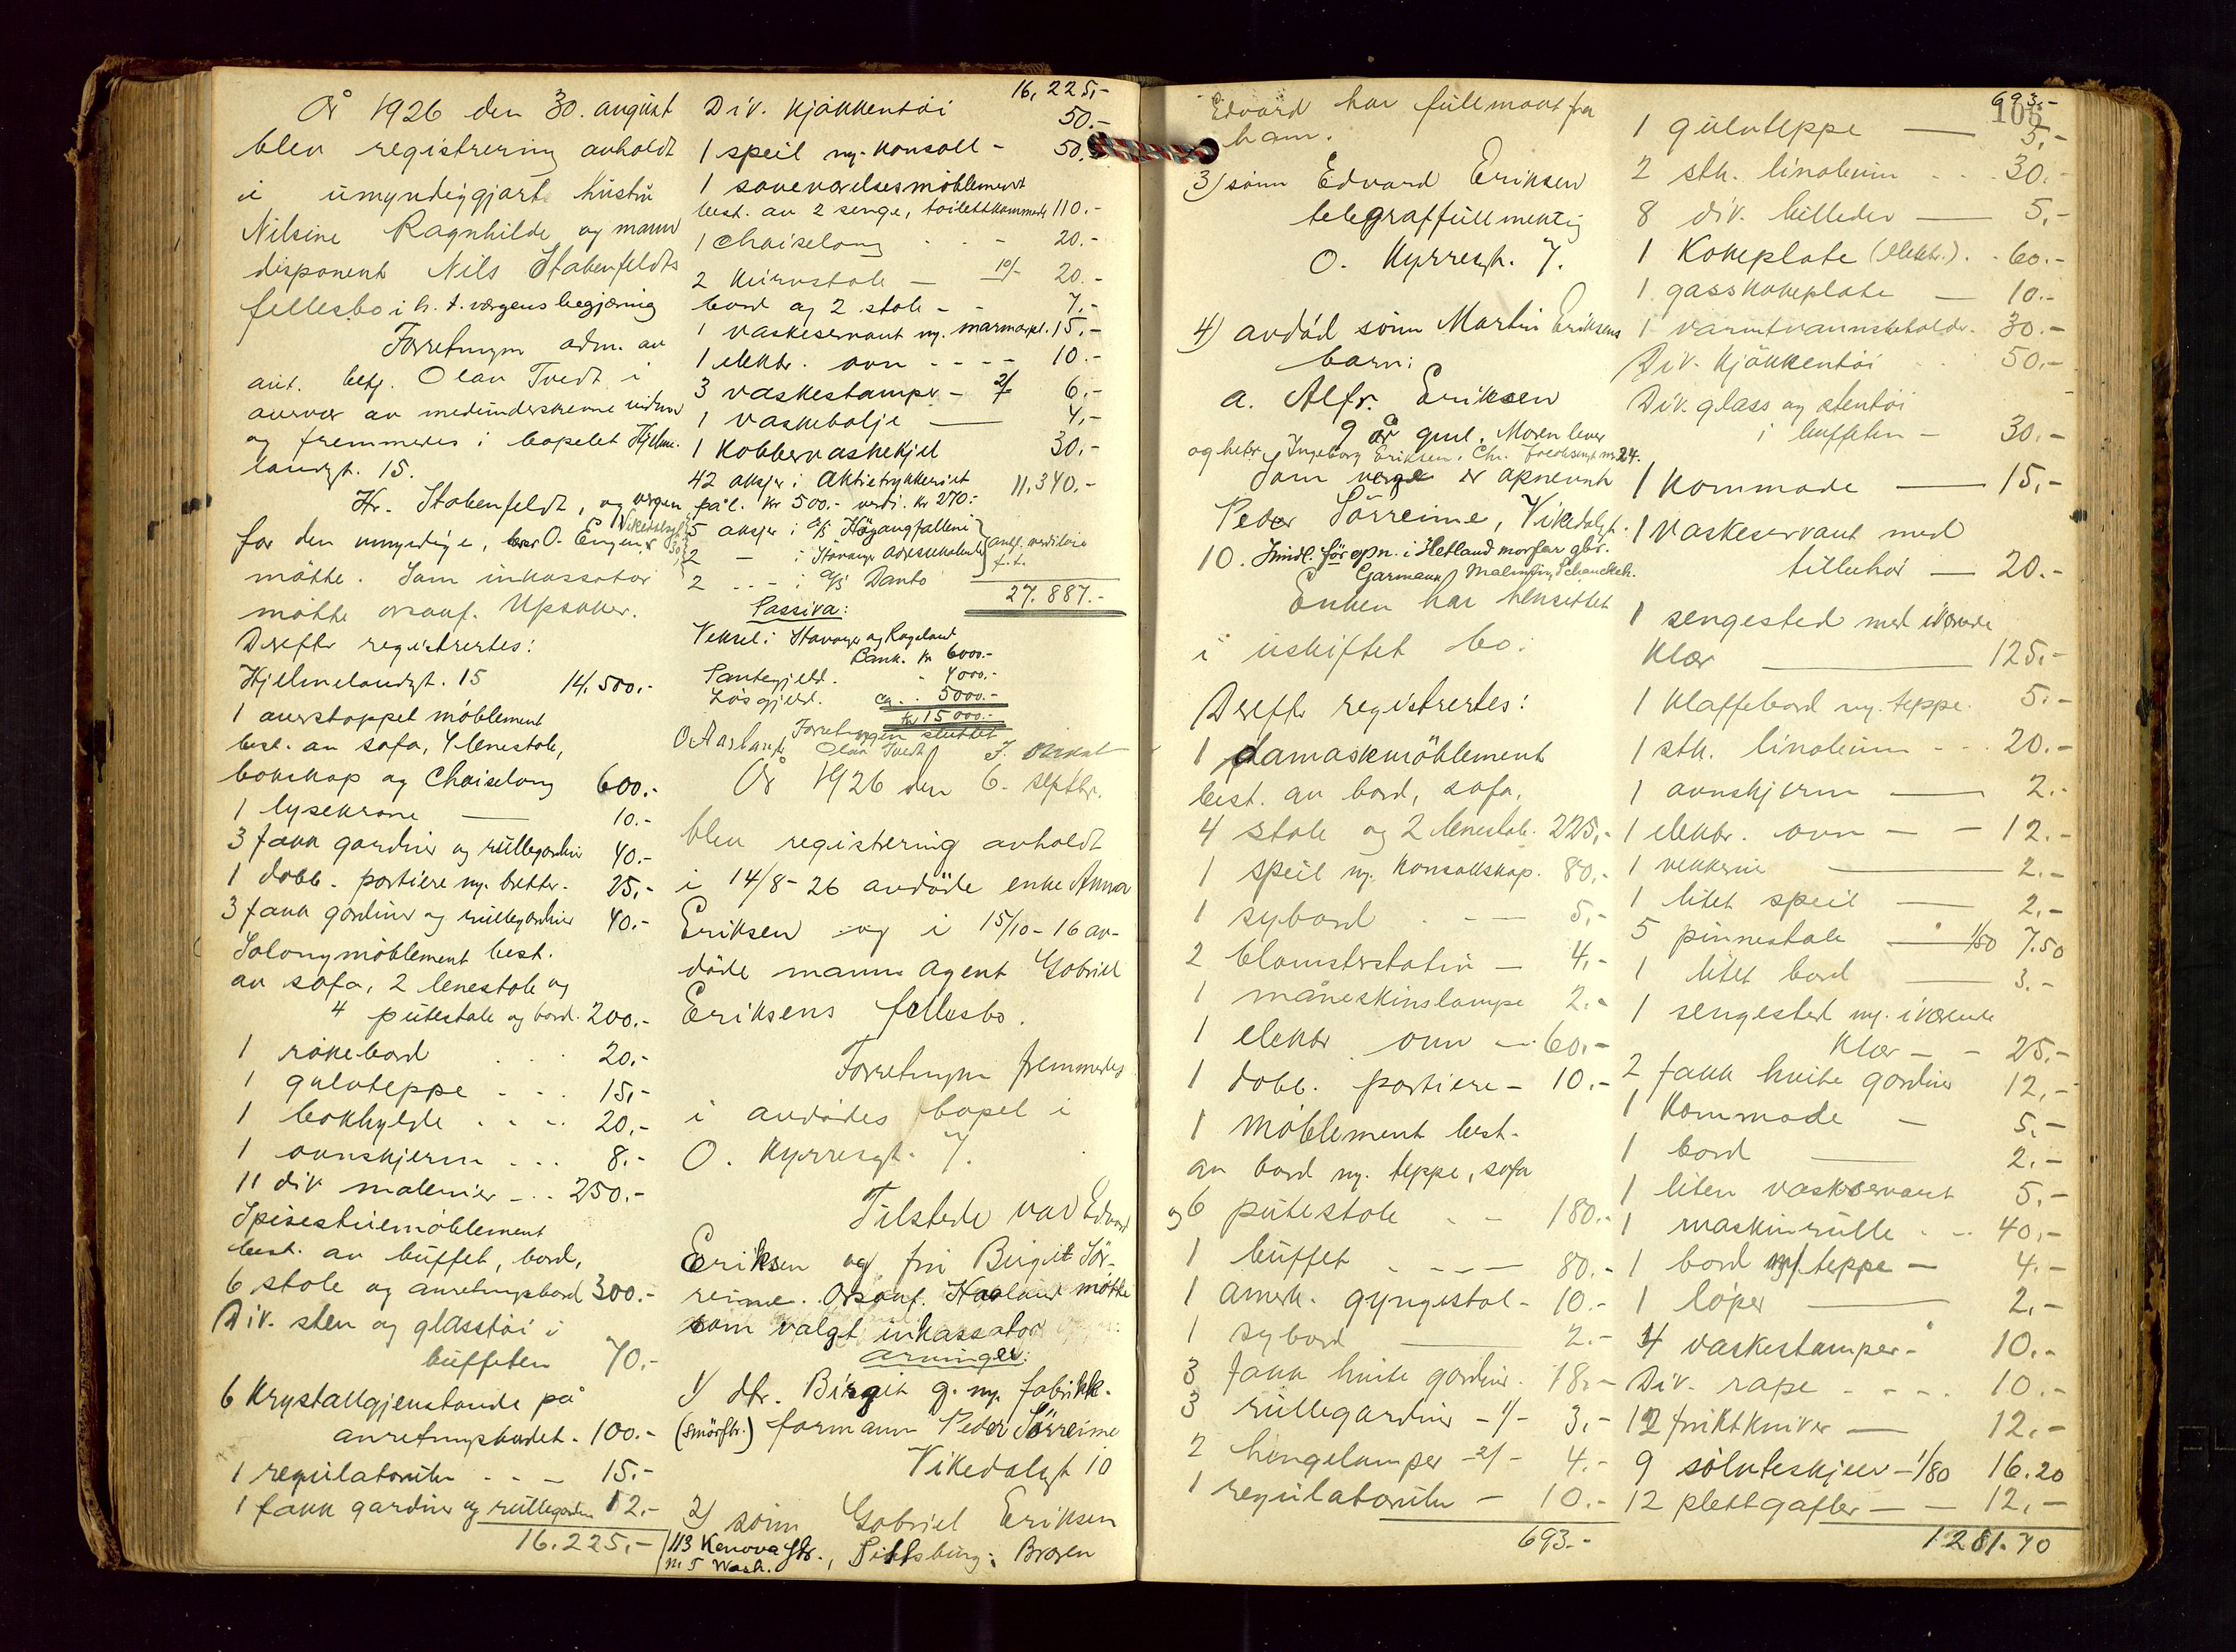 År 1926 den 30. august
blev registrering avholdt
i umyndiggjort hustru
Nilsine Ragnhilde og mann
disponent Nils Stabenfeldts
fellesbo i h. t. vergens begjæring
Forretningen adm. av
aut. betj. Olav Tvedt i
overvær av medunderskrevne vidner
og fremmedes i bopelet Hjelme-
landsgt. 15.
Hr. Stabenfeldt, og vergen
for den umyndige, O. Engen, Vikedalsgt. 30,
møtte. Som inkassator
møtte orsanf. Upsaker.
Derefter registrertes:
Hjelmelandsgt. 15 14.500.-
1 overstoppet møblement
best. av sofa, 4 lenestole,
bokskap og Chaiselong 600.-
1 lysekrone — 10.-
3 fakk gardiner og rullegardiner 40.-
1 dobb. portiere m. bretter. 25,-
3 fakk gardiner og rullegardiner 40.-
Salongmöblement best.
av sofa, 2 lenestole og
4 putestole og bord. 200.-
1 rökebord . . . 20.-
1 gulvteppe - . . 15,-
1 bokhylde . . . 20,-
1 ovnskjerm . . . 8.-
11 div malerier - . . 250.-
Spisestuemöblement
best. av buffet, bord,
6 stole og anretningsbord 300.-
Div. sten og glasstöi i
buffeten 70.-
6 Krystallgjenstande på
anretningsbordet. 100.-
1 regulatorur - - - 15.-
1 fakk gardiner og rullegardin 12.-
16.225,-
16,225,-
Div. Kjökkentöi 50.-
1 speil m. Konsoll - 50.-
1 soveværelsesmöblement
best. av 2 senge, toilettkommode 110.-
1 Chaiselong . . - 20.-
2 Kurvstole — 10/- 20.-
bord og 2 stole - - 7.-
1 vaskeservant m. marmorpl. 15,-
1 elektr. ovn - - - - 10.-
3 vaskestamper - 2/- 6.-
1 vaskebalje — 4,-
1 Kobbervaskekjel 30.-
42 aksjer i Aktietrykkeriet
pål. kr 500.- verdi. kr 270.- 11.340.-
5 aksjer i A/S Högangfalleni
2 — i Stavanger Adressekalender } antl. verdilöse
2 - - - i A/S Danto f. t.
27.887.-
Passiva:
Veksel i Stavanger og Rogaland
Bank. kr 6000.-
Pantegjeld. - 4000.-
Lösgjeld. ca. . 5000.-
kr 15000.-
Forretningen sluttet
O Aarland Olav Tvedt
År 1926 den 6. septbr.
blev registrering avholdt
i 14/8-26 avdöde enke Anna
Eriksen og i 15/10-16 av-
döde mann Agent Gabriel
Eriksens fellesbo.
Forretningen fremmedes
i avdödes bopel i
O. Kyrresgt. 7.
Tilstede var Edvard
Eriksen og fru Birgit Sör-
reime. Orsanf. Haaland møtte
som valgt inkassator
Arvinger:
1) dtr. Birgit g. m. fabrikk-
(smörfbr.) formann Peder Sörreime
Vikedalsgt 10
2) sönn Gabriel Eriksen
113 Kenova Str., Pittsburg. Broren
m 5 Wash.
Edvard har fullmakt fra
ham.
3) sönn Edvard Eriksen
telegraffullmektig
O. Kyrresgt. 7.
4) avdöd sönn Martin Eriksens
barn:
a. Alfr. Eriksen
9 år gml. Moren lever
og heter Ingeborg Eriksen, Chr. Fredriksengt nr. 24.
Som verge er opnevnt
Peder Sörreime, Vikedalsgt.
10. Imidl. för opn. i Hetland morfar gbr.
Garmann Malmin, Schanckeh.
Enken har hensittet
i uskiftet bo.
Derefter registrertes:
1 damaskmöblement
best. av bord, sofa,
4 stole og 2 lenestole. 225,-
1 speil m. Konsollskap. 80,-
1 sybord - - — 5,-
2 blomsterstativ — 4,-
1 måneskinslampe 2.-
1 elektr ovn — 60,-
1 dobb. portiere - 10.-
1 Möblement best.
av bord m. teppe, sofa
og 6 putestole - - 180.-
1 buffet - - - — 80.-
1 amerk. gyngestol - 10.-
1 sybord — 2.-
3 fakk hvite gardiner. 18.-
3 rullegardiner - 1/- 3,-
2 hengelamper - 2/- 4.-
1 regulatorur — 10.-
693.-
693.-
108
1 gulvteppe — 5,-
2 stk. linoleum - . . 30.-
8 div. billeder — 5,-
1 Kokeplate (elektr.) . . 60.-
1 gasskokeplate — 10.-
1 varmtvannsbeholder. 30.-
Div. Kjökkentöi . . 50,-
Div. glass og stentöi
i buffeten — 30.-
1 Kommode — 15,-
1 Vaskeservant med
tilbehör — 20.-
1 sengested med iværende
Klær — 125,-
1 Klaffebord m. teppe. 5.-
1 stk. linoleum - - . 20.-
1 ovnskjerm — 2.-
1 elektr. ovn — - 12.-
1 vekkerur — 2.-
1 litet speil — 2,-
5 pinnestole — 1/50 7.50
1 litet bord — 3.-
1 sengested m. iværende
Klær - - 25,-
2 fakk hvite gardiner 12,-
1 Kommode — 5.-
1 bord — 2.-
1 liten vaskeservant 5.-
1 maskinrulle . . . 40,-
1 bord m/ teppe — 4.-
1 löper — 2,-
4 vaskestamper - 10.-
Div. rape - - - . 10.-
12 fruktkniver — 12.-
9 sölvteskjeer - 1/80 16.20
12 plettgafler — - 12,-
1281.70